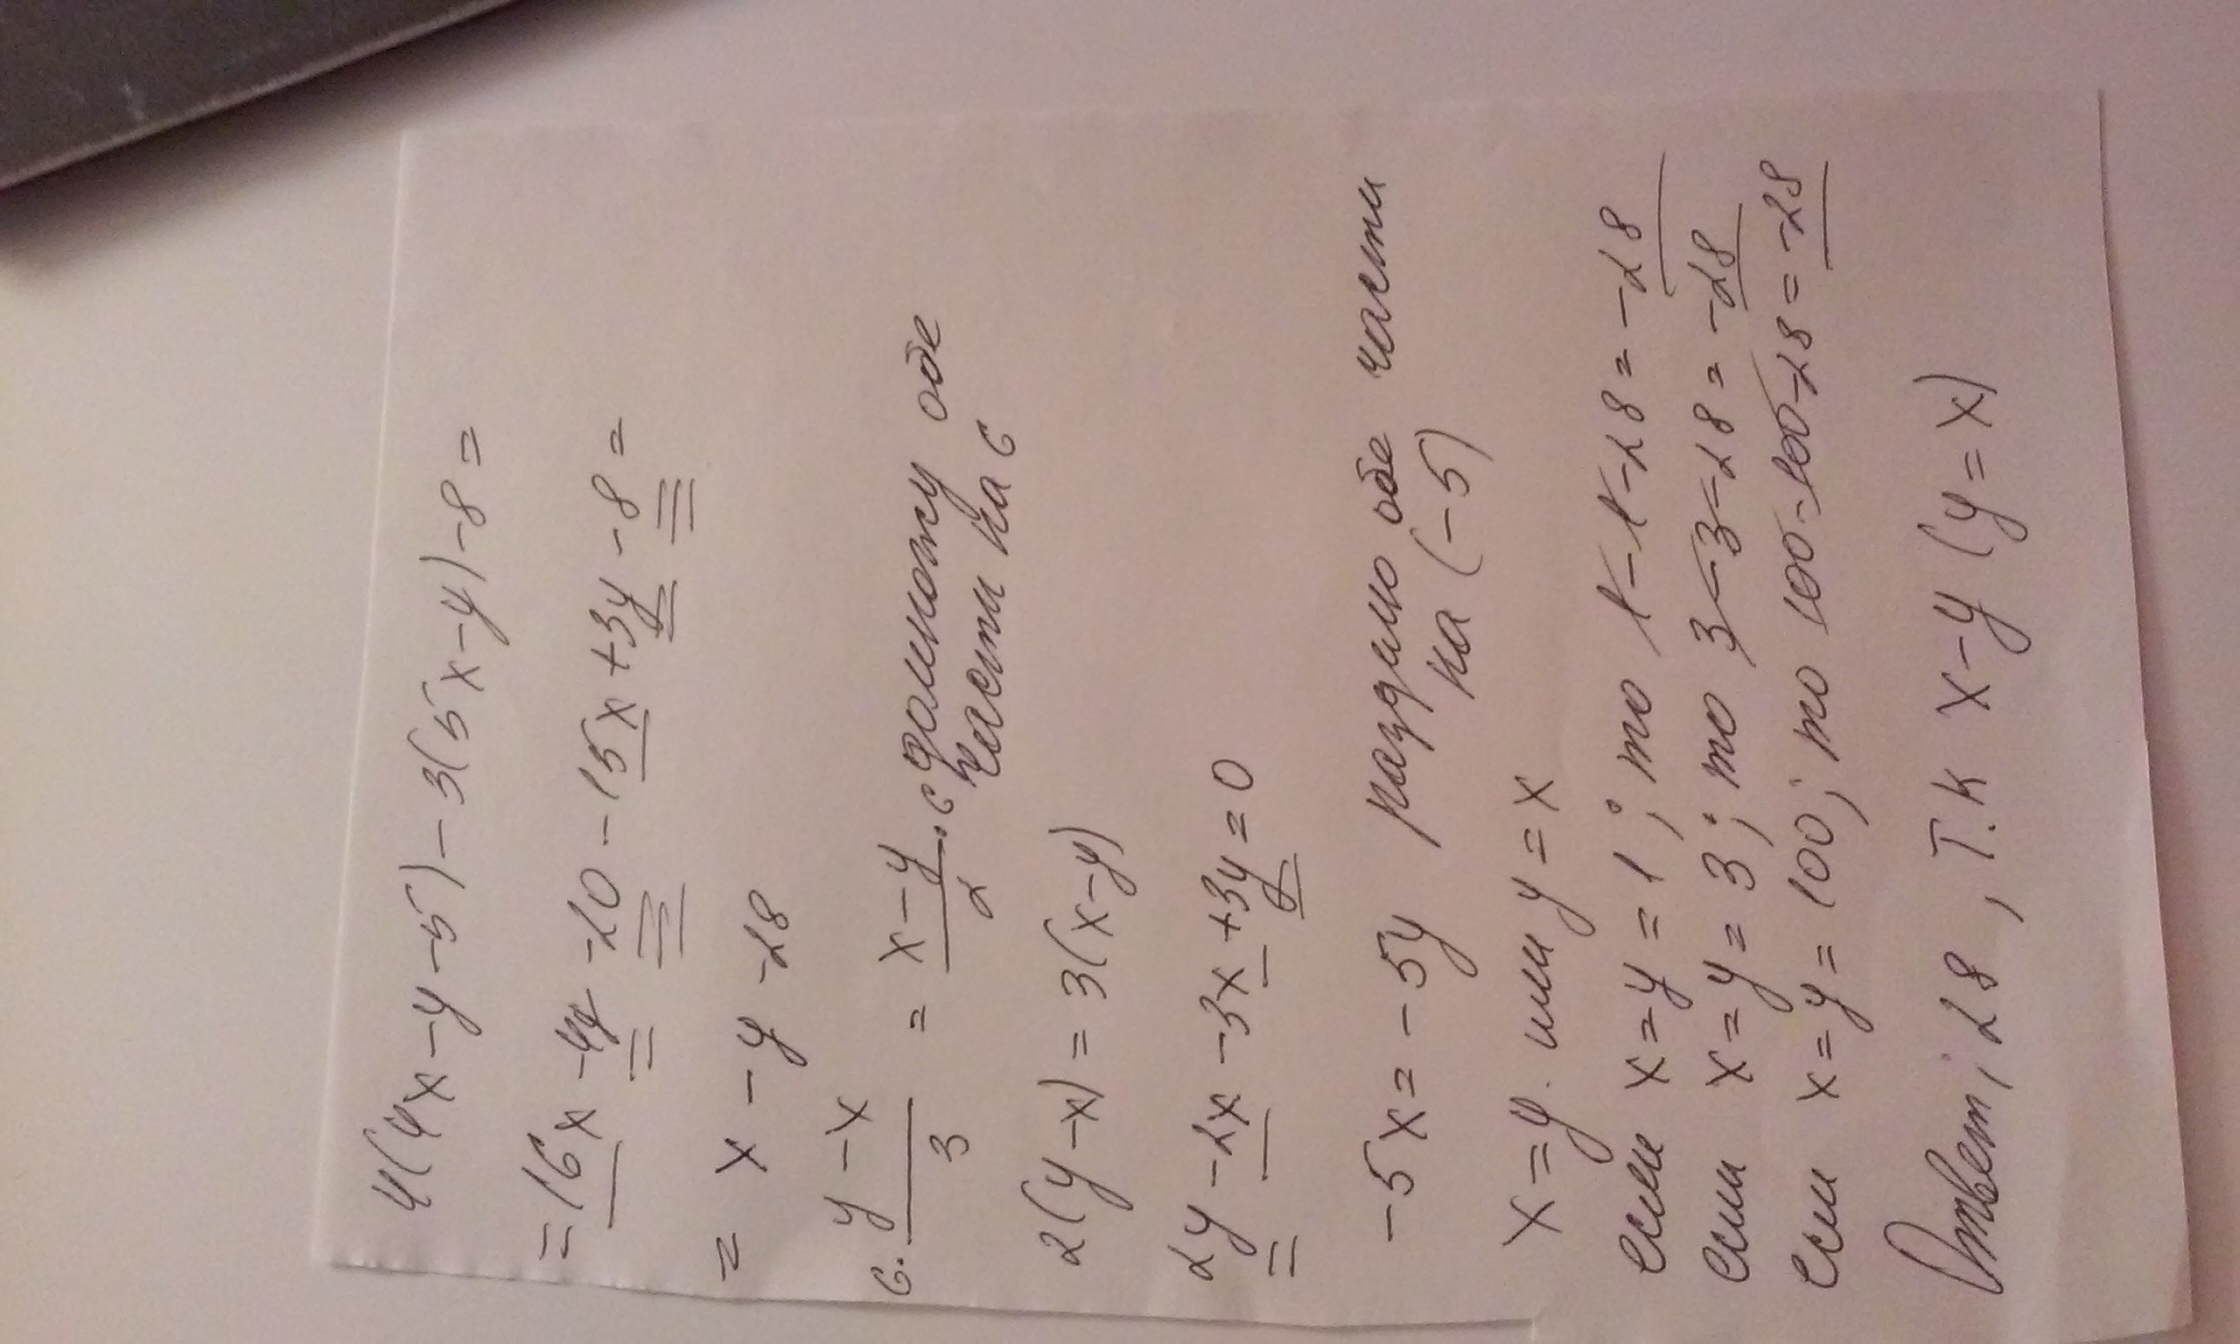 4(4x-y-5)-3(5x-y)-8=
=16x-4y-20-15x+3y-8=
= x-y-28
6· y-x/3 = x-y/2 ·6 домножу обе
части на 6
2(y-x)=3(x-y)
2y-2x-3x+3y=0
-5x=-5y разделю обе части
на (-5)
x=y. или y=x
если x=y=1; то 1-1-28=-28
если x=y=3; то 3-3-28=-28
если x=y=100; то 100-100-28=-28
Ответ; 28, Т.К x-y (y=x)